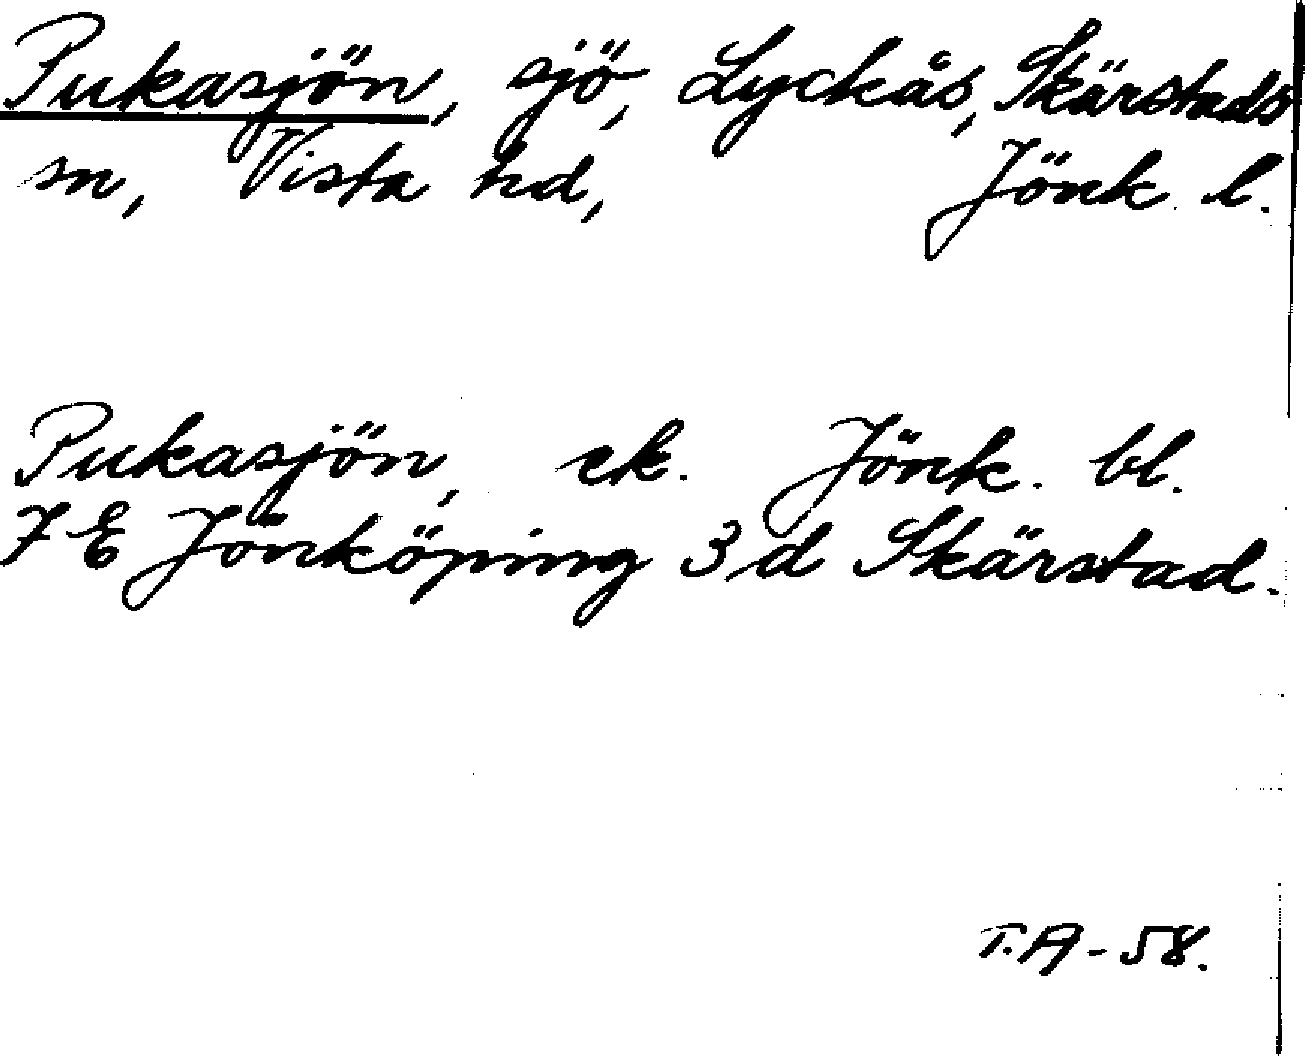 Pukasjön, sjö, Lyckås, Skärstads
sn, Vista hd, Jönk. l.
Pukasjön, ek. Jönk. bl.
7 E Jönköping 3 d Skärstad.
T.A-58.